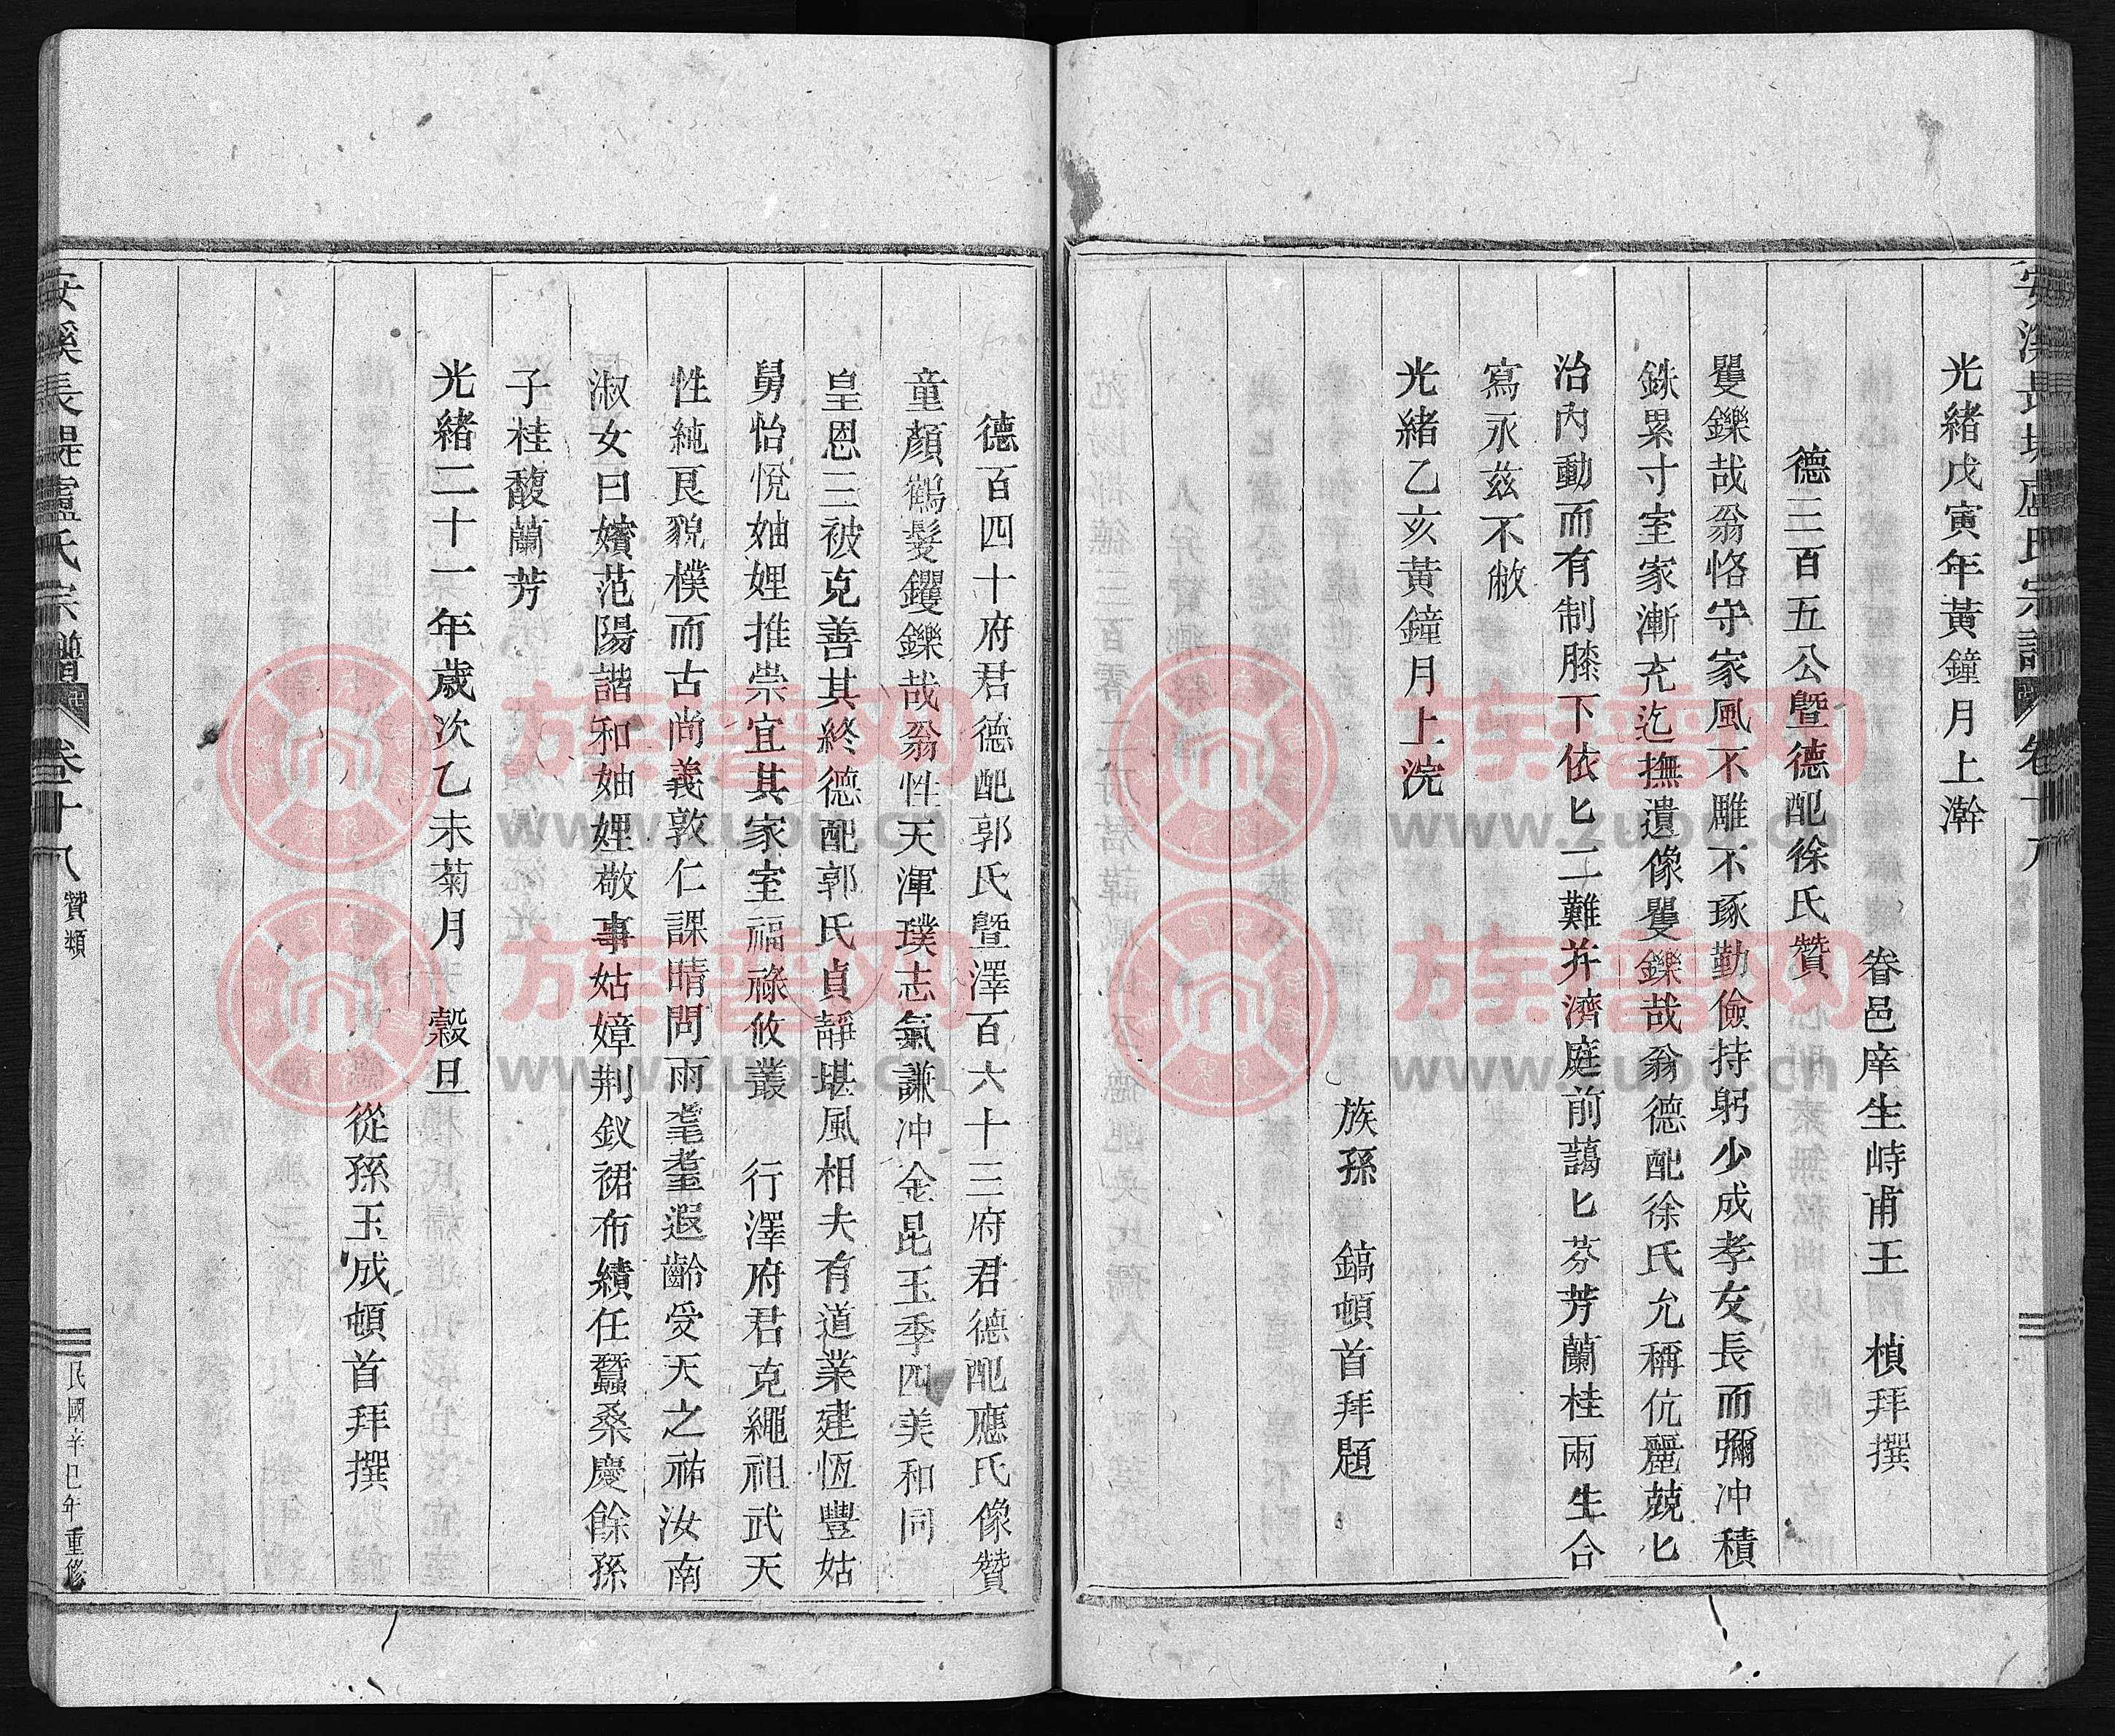 光緒戊寅年黃鐘月上澣
眷邑庠生峙甫王　楨拜撰
德三百五公暨德配徐氏贊
矍鑠哉翁恪守家風不雕不琢勤儉持躬少成孝友長而彌冲積
銖累寸室家漸充迄撫遺像矍鑠哉翁德配徐氏允稱伉麗兢匕
治內動而有制膝下依匕二難并濟庭前藹匕芬芳蘭桂兩生合
寫永茲不敝
光緒乙亥黃鐘月上浣
族孫　鎬頓首拜題
德百四十府君德配郭氏暨澤百六十三府君德配應氏像贊
童顏鶴髮钁鑠哉翁性天渾璞志氣謙冲金昆玉季四美和同
皇恩三被克善其終德配郭氏貞靜堪風相夫有道業建恆豐姑
舅怡悅妯娌推崇宜其家室福祿攸叢　行澤府君克繩祖武天
性純良貌樸而古尚義敦仁課晴問雨耄耋遐齡受天之祐汝南
淑女曰嬪范陽諧和妯娌敬事姑嫜荆釵裙布績任蠶桑慶餘孫
子桂馥蘭芳
光緒二十一年歲次乙未菊月　穀旦
從孫玉成頓首拜撰
安溪長堤盧氏宗譜　卷十八　贊類　民國辛巳年重修
族譜网
www.zupu.cn
族譜网
www.zupu.cn
族譜网
www.zupu.cn
族譜网
www.zupu.cn